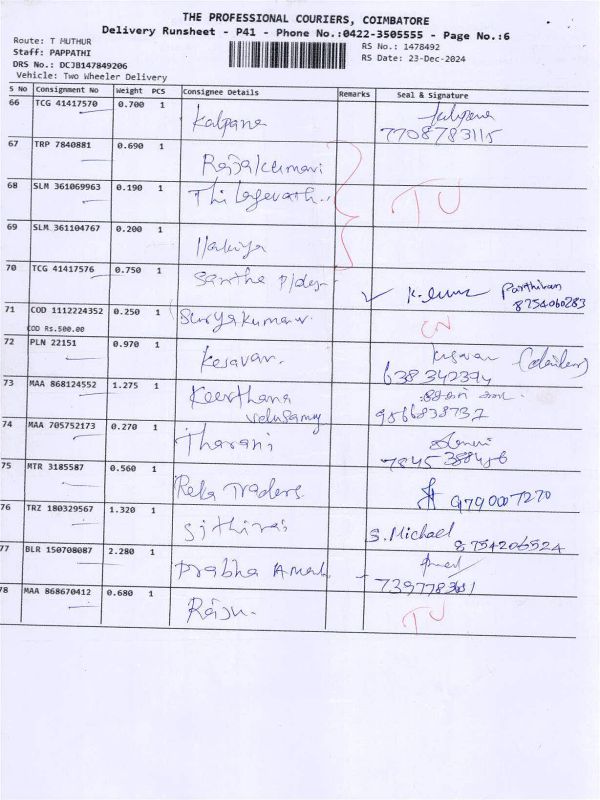 THE PROFESSIONAL COURIERS, COIMBATORE
Delivery Runsheet - P41 - Phone No.:0422-3505555 - Page No.:6
Route: T MUTHUR
RS No.: 1478492
Staff: PAPPATHI
RS Date: 23-Dec-2024
DRS No.: DCJB147849206
Vehicle: Two Wheeler Delivery
S No Consignment No Weight PCS Consignee Details Remarks Seal & Signature
66 TCG 41417570 0.700 1 Kalpana Kalpana
7708783115
67 TRP 7840881 0.690 1 Rajakumari
68 SLM 361069963 0.190 1 TU
69 SLM 361104767 0.200 1
70 TCG 41417576 0.750 1 Santha Parthiban
8754060283
71 COD 1112224352 0.250 1 Suryakumar CN
COD Rs.500.00
72 PLN 22151 0.970 1 Kesavan. Kesavan
638342394
73 MAA 868124552 1.275 1 Keerthana
Velusamy 9566838737
74 MAA 705752173 0.270 1 Tharani
7845388486
75 MTR 3185587 0.560 1 Reka Traders 9790007270
76 TRZ 180329567 1.320 1 S. Michael
8754206524
77 BLR 150708087 2.280 1 Prabha
78 MAA 868670412 0.680 1 Raju. TU